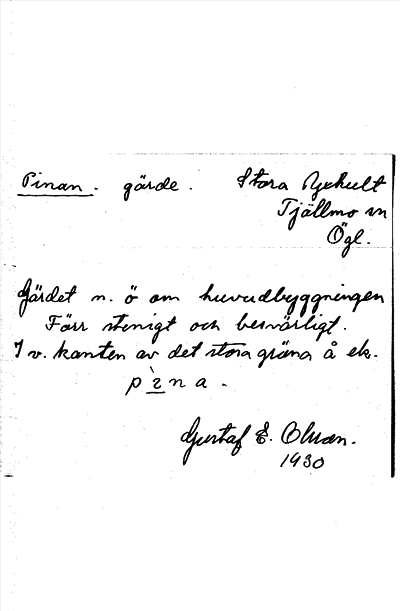 Pinan. gärde. Stora
Tjällmo sn
Ögl.
Gärdet n. ö om huvudbyggningen
Förr stenigt och besvärligt.
I v. kanten av det stora gräna å ek.
pìna.
Gustaf E. Olson.
1930